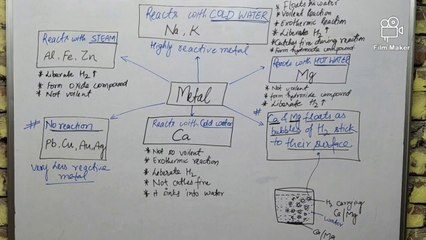 Reacts with STEAM
Al, Fe, Zn
* Liberate H₂ ↑
* form Oxide compound
* Not violent
Reacts with COLD WATER
Na, K
Highly reactive metal
* Floats on water
* Voilent Reaction
* Exothermic Reaction
* Liberate H₂ ↑
* Catches fire during reaction
* form hydroxide compound
Reacts with HOT WATER
Mg
* Not violent
* form Hydroxide compound
* Liberate H₂ ↑
Metal
## No reaction
Pb, Cu, Au, Ag
Very less reactive
metal
Reacts with Cold water
Ca
* Not so violent
* Exothermic reaction
* Liberate H₂
* Not catches fire
* It sinks into water
## Ca & Mg floats as
bubbles of H₂ stick
to their surface
H₂ carrying
Ca/Mg
water
Ca/Mg
Film Maker